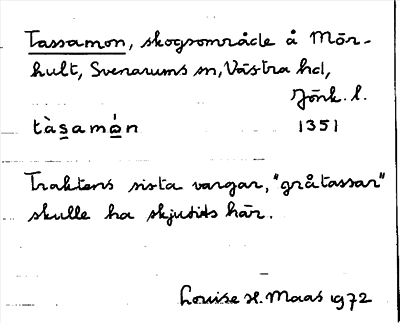 Tassamon, skogsområde å Mör-
hult, Svenarums sn, Västra hd,
Jönk. l.
tàsamån 1351
Traktens sista vargar, "gråtassar"
skulle ha skjutits här.
Louise H. Maas 1972